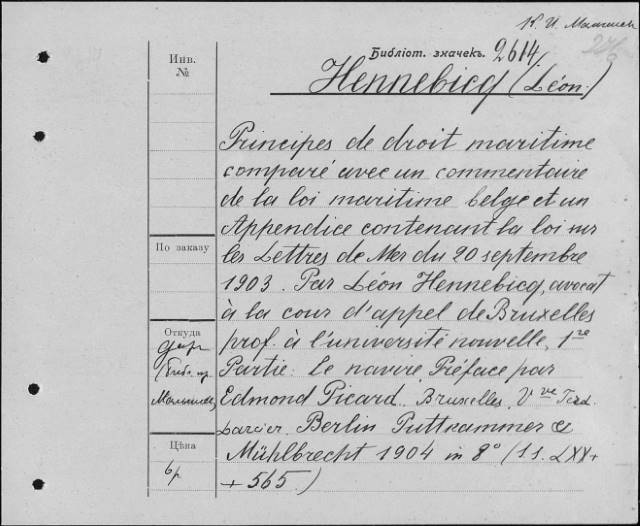 К. И. Малышев
Библіот. значекъ. 2614.
Инв.
№
Hennebicq (Léon)
Principes de droit maritime
comparé avec un commentaire
de la loi maritime belge et un
Appendice contenant la loi sur
les Lettres de Mer du 20 septembre
1903. Par Léon Hennebicq, avocat
à la cour d'appel de Bruxelles
prof. à l'université nouvelle, 1re
Partie. Le navire. Préface par
Edmond Picard. Bruxelles, Vve Ferd.
Larcier. Berlin Puttkammer &
Mühlbrecht 1904 in 8° (11. LXX+
+ 565)
По заказу
Откуда
дар
Цѣна
6 р